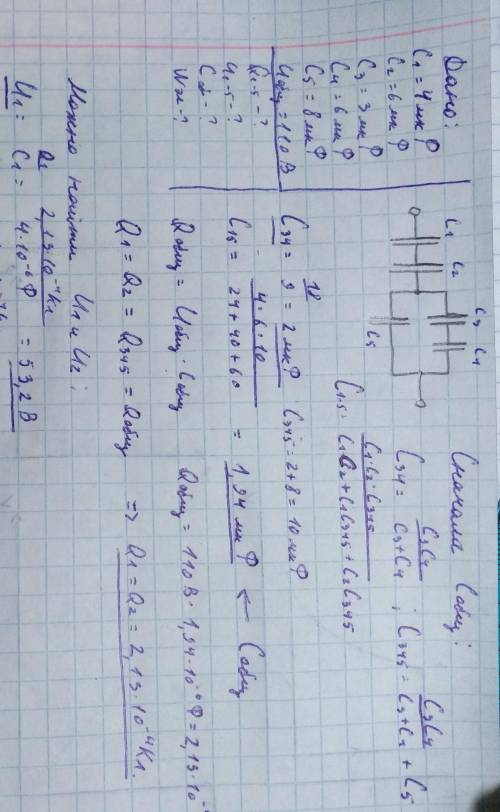 Дано:
C1 = 4 мкФ
C2 = 6 мкФ
C3 = 3 мкФ
C4 = 6 мкФ
C5 = 8 мкФ
Uобщ = 110 В
Q1-5 - ?
U1-5 - ?
Cоб - ?
Wэ - ?
C1 C2 C3 C4
C5
Сначала Cобщ:
C34 = C3C4 / C3+C4 ; C345 = C3C4 / C3+C4 + C5
C1-5 = C1·C2·C345 / C1C2+C1C345+C2C345
C34 = 18 / 9 = 2 мкФ C345 = 2+8 = 10 мкФ
C15 = 4·6·10 / 24+40+60 = 1,94 мкФ ← Cобщ
Qобщ = Uобщ · Cобщ Qобщ = 110 В · 1,94·10⁻⁶ Ф = 2,13·10⁻
Q1 = Q2 = Q345 = Qобщ => Q1 = Q2 = 2,13·10⁻⁴ Кл.
Можно найти U1 и U2:
U1 = Q1 / C1 = 2,13·10⁻⁴ Кл / 4·10⁻⁶ Ф = 53,2 В